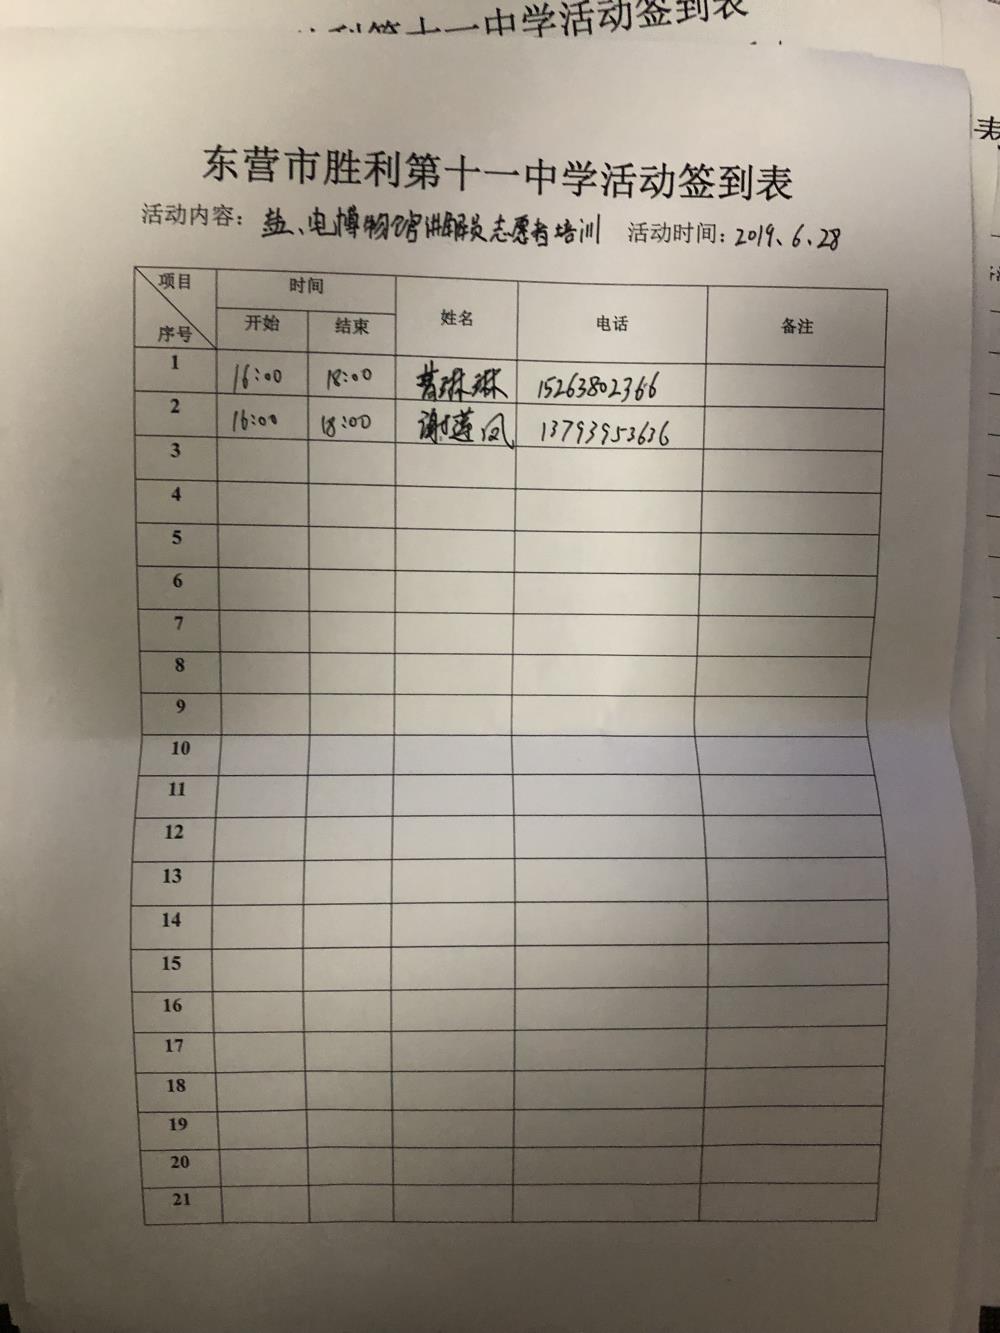 中学活动签到表
东营市胜利第十一中学活动签到表
活动内容：盐、电博物馆讲解员志愿者培训 活动时间：2019.6.28
项目 时间 姓名 电话 备注
序号 开始 结束
1 16:00 18:00 琳琳 15263802366
2 16:00 18:00 谢莲凤 13793953636
3
4
5
6
7
8
9
10
11
12
13
14
15
16
17
18
19
20
21
表